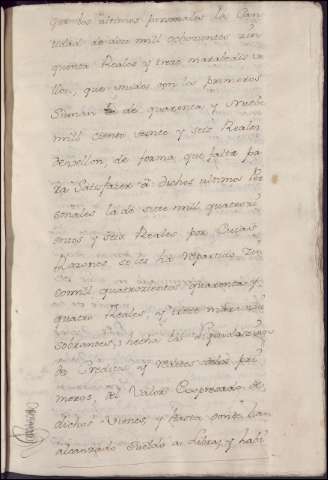 que los ultimos personales la Can
tidad de doce mill ochocientos cin
quenta Reales y trece maravedis ve
llon, que unidos con los primeros
Suman la de quarenta y nuebe
mill ciento veinte y seis Reales
de vellon, de forma que falta pa
ra Satisfazer â dichos ultimos Per
sonales la de siete mill quatrosi
entos y seis Reales por Cuias
Razones se les ha repartido
mill quatrocientos quarenta y
quatro Reales, y siete mrs
sobrantes, hecha la liquidazion
de Creditos y reditos de los pri
meros, del Valor Expresado de
dichos Vienes, y hasta donde han
alcanzado Sueldo a Libra, y havi